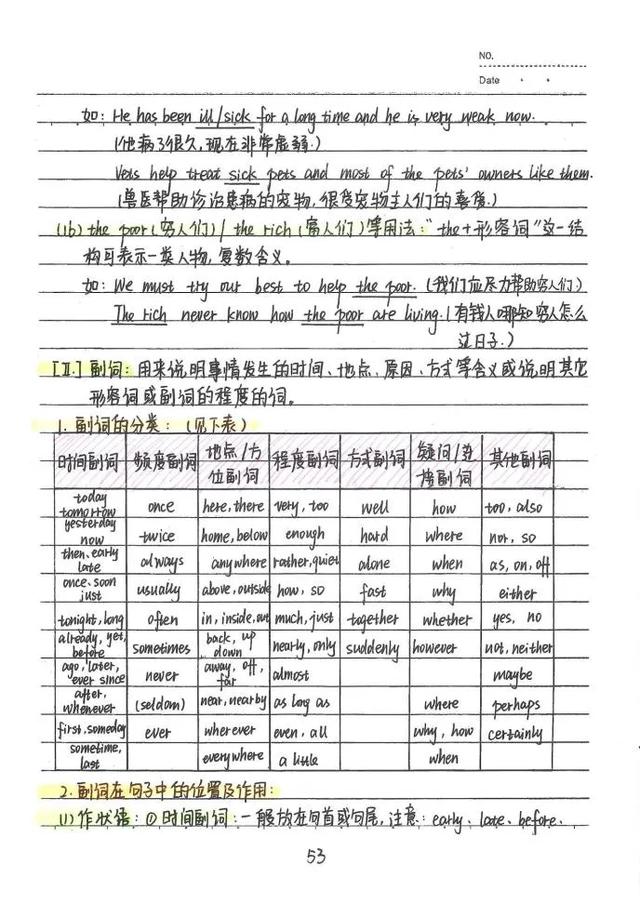 NO.
Date
如: He has been ill/sick for a long time and he is very weak now.
(他病了很久,现在非常虚弱.)
Vets help treat sick pets and most of the pets' owners like them.
(兽医帮助诊治患病的宠物,很受宠物主人们的喜爱.)
(16) the poor(穷人们)/ the rich(富人们)等用法:"the+形容词"这一结
构可表示一类人物,复数含义。
如: We must try our best to help the poor. (我们应尽力帮助穷人们)
The rich never know how the poor are living. (有钱人哪知穷人怎么
过日子.)
[Ⅱ.] 副词: 用来说明事情发生的时间、地点、原因、方式等含义或说明其它
形容词或副词的程度的词。
1. 副词的分类: (见下表)
时间副词 频度副词 地点/方位副词 程度副词 方式副词 疑问/连接副词 其他副词
today tomorrow once here, there very, too well how too, also
yesterday now twice home, below enough hard where nor, so
then, early late always anywhere rather, quiet alone when as, on, off
once, soon just usually above, outside how, so fast why either
tonight, long often in, inside, out much, just together whether yes, no
already, yet, before sometimes back, up down nearly, only suddenly however not, neither
ago, later, ever since never away, off, far almost maybe
after, whenever (seldom) near, nearby as long as where perhaps
first, someday ever wherever even, all why, how certainly
sometime, last everywhere a little when
2. 副词在句子中的位置及作用:
(1) 作状语: ① 时间副词: 一般放在句首或句尾, 注意: early、late、before、
53